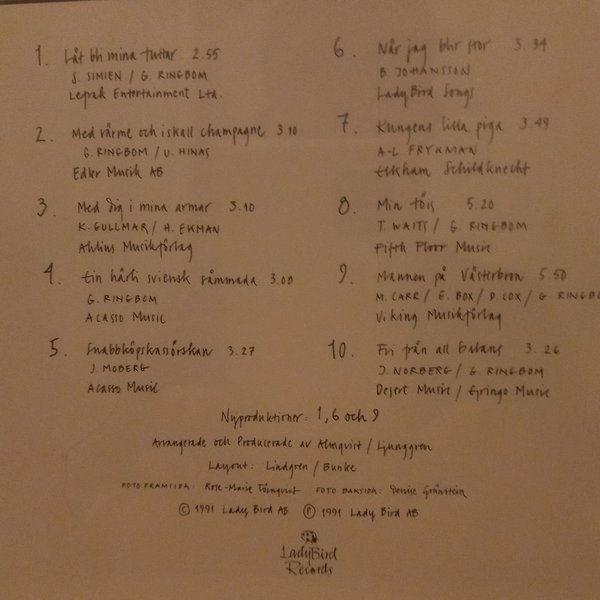 1. Låt bli mina tuttar 2.55
S. SIMIEN / G. RINGBOM
Leprak Entertainment Ltd.
2. Med värme och iskall champagne 3.10
G. RINGBOM / U. HINAS
Edler Musik AB
3. Med dig i mina armar 3.10
K. GULLMAR / H. EKMAN
Ahlins Musikförlag
4. Ein hårli sviensk såmmada 3.00
G. RINGBOM
Acasso Music
5. Snabbköpskassörskan 3.27
J. MOBERG
Acasso Music
6. När jag blir stor 3.34
B. JOHANSSON
LadyBird Songs
7. Kungens lilla piga 3.49
A-L FRYKMAN
Elkham Schildknecht
8. Min töis 5.20
T. WAITS / G. RINGBOM
Fifth Floor Music
9. Mannen på Västerbron 5.50
M. CARR / E. BOX / D. COX / G. RINGBO
Viking Musikförlag
10. Fri från all balans 3.26
J. NORBERG / G. RINGBOM
Desert Music / Gringo Music
Nyproduktioner: 1, 6 och 9
Arrangerade och Producerade av Almqvist / Ljunggren
Layout: Lindgren / Bunke
FOTO FRAMSIDA: Rose-Marie Törnqvist FOTO BAKSIDA: Denise Grünstein
© 1991 Lady Bird AB ℗ 1991 Lady Bird AB
LadyBird
Records